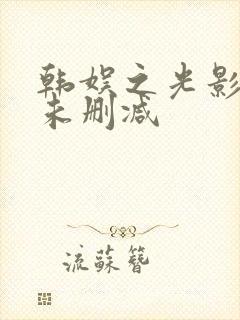 韩娱之光影
未删减
流蘇簪